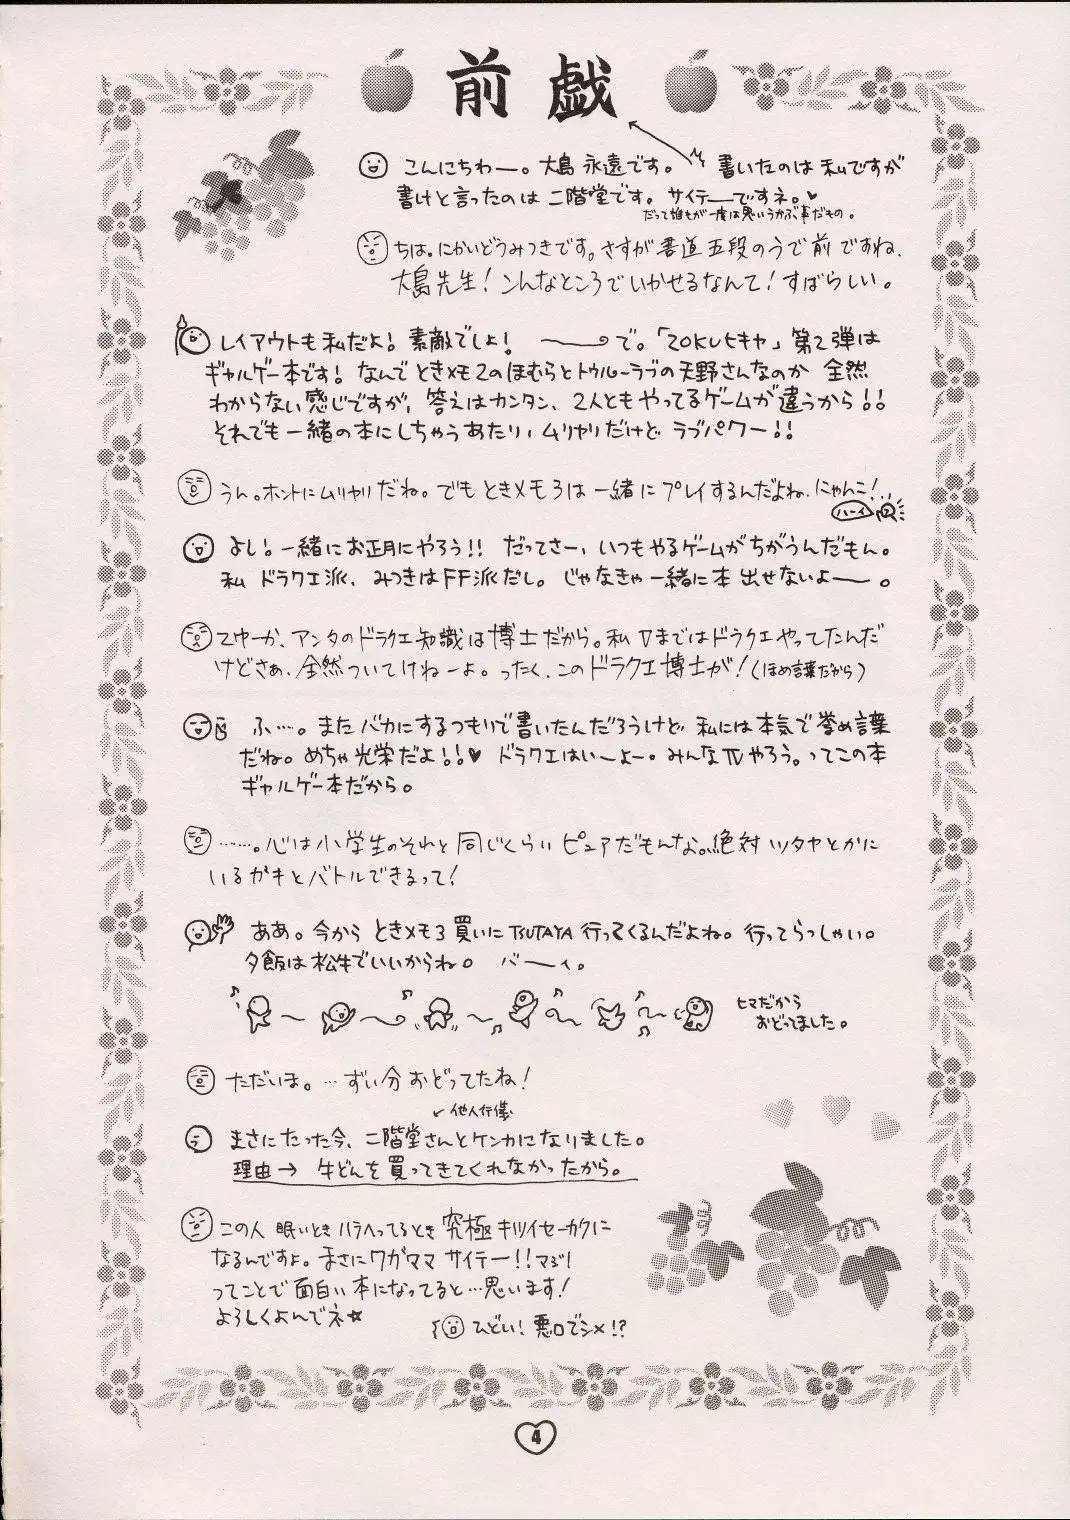 前戯
こんにちわー。大島 永遠です。 書いたのは 私ですが
書けと言ったのは 二階堂です。サイテーですネ。♥
だって誰もが一度は思いうかぶ事だもの。
ちは。にかいどうみつきです。さすが書道五段のうで前ですね、
大島先生！こんなところでいかせるなんて！すばらしい。
レイアウトも私だよ！素敵でしょ！ 〜で。「20KUヒキャ」第2弾は
ギャルゲー本です！なんでときメモ2のほむらとトゥルーラブの天野さんなのか 全然
わからない感じですが、答えはカンタン、2人ともやってるゲームが違うから!!
それでも一緒の本にしちゃうあたり、ムリヤリだけど ラブパワー!!
うん。ホントにムリヤリだね。でもときメモ3は一緒にプレイするんだよね、にゃんこ！
ハーイ
よし！一緒にお正月にやろう!! だってさー、いつもやるゲームがちがうんだもん。
私 ドラクエ派、みつきはFF派だし。じゃなきゃ一緒に本出せないよー。
てゆーか、アンタのドラクエ知識は博士だから。私Ⅴまではドラクエやってたんだ
けどさぁ、全然ついてけねーよ。ったく、このドラクエ博士が！(ほめ言葉だから)
ふ…。またバカにするつもりで書いたんだろうけど 私には本気で誉め言葉
だね。めちゃ光栄だよ!!♥ ドラクエはいーよー。みんなⅣやろう。ってこの本
ギャルゲー本だから。
……。心は小学生のそれと同じくらいピュアだもんな。絶対ツタヤとかに
いるガキとバトルできるって！
ああ。今から ときメモ3買いにTSUTAYA行ってくるんだよね。行ってらっしゃい。
夕飯は松牛でいいからね。 バーイ。
ヒマだから
おどってました。
ただいま。…ずい分おどってたね！
他人行儀
まさにたった今、二階堂さんとケンカになりました。
理由→ 牛どんを買ってきてくれなかったから。
この人 眠いとき ハラへってるとき 究極キツイセーカクに
なるんですよ。まさにワガママ サイテー!!マジ！
ってことで面白い本になってると…思います！
よろしくよんでネ☆
ひどい！悪口でシメ!?
4